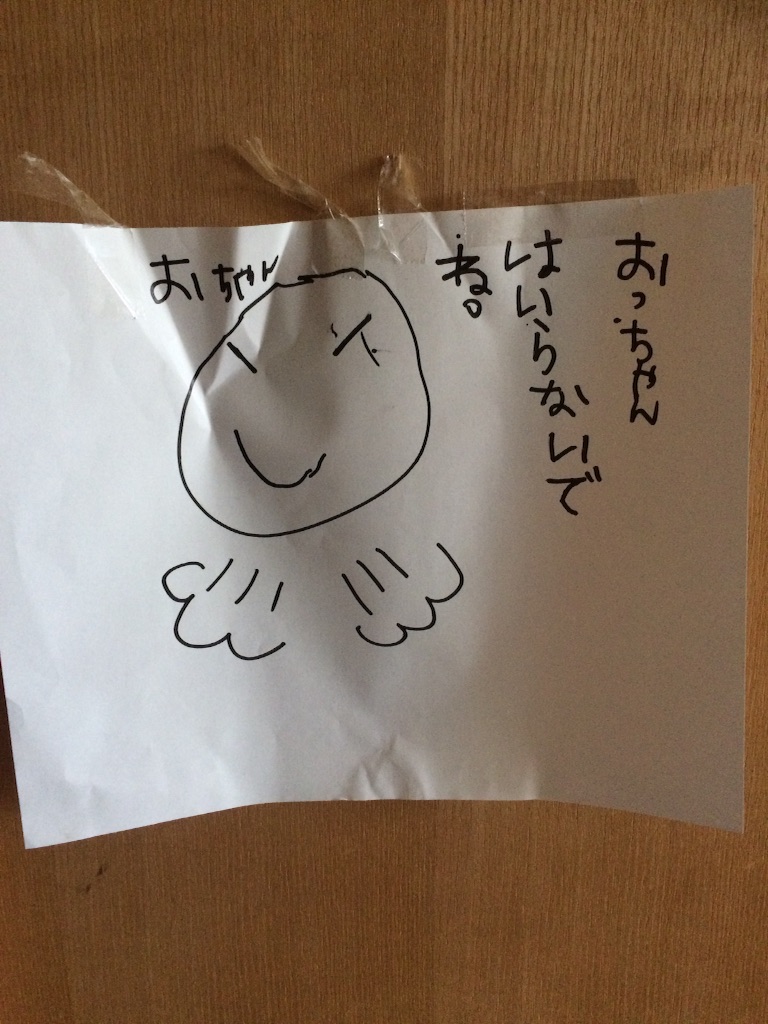 おっちゃん
はいらないで
ね。
おちゃん